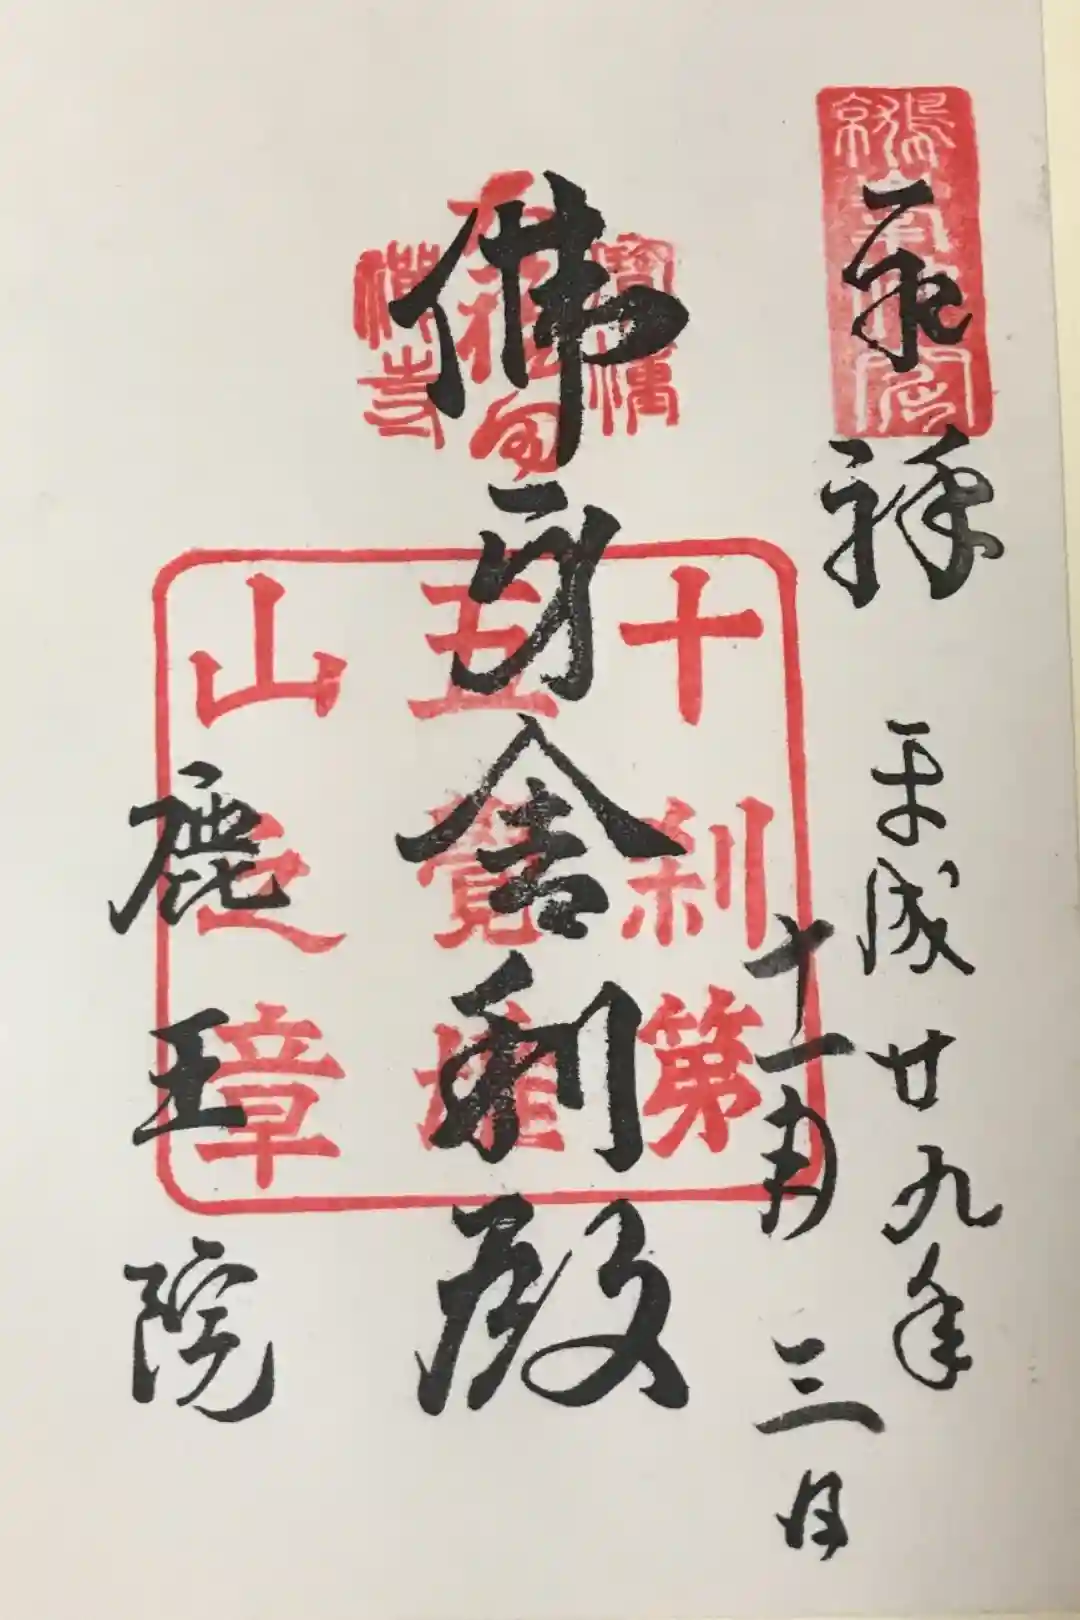 平成廿九年
十一月三日
佛牙舍利殿
十刹第
五覺雄
山之章
鹿王院